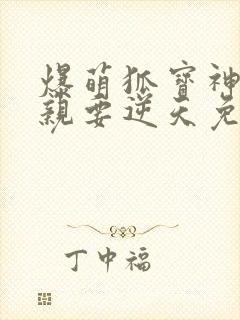 爆萌狐寶神
親要逆天免
丁中福